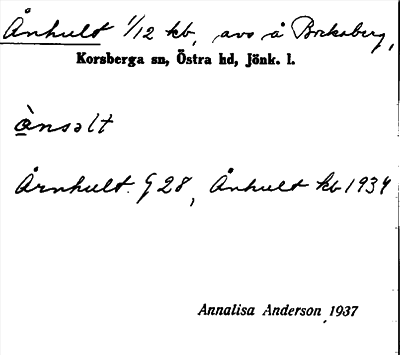 Ånhult 1/12 kb, avs å Bocksberg,
Korsberga sn, Östra hd, Jönk. l.
ånsalt
Årnhult. G 28, Ånhult kb 1934
Annalisa Anderson 1937